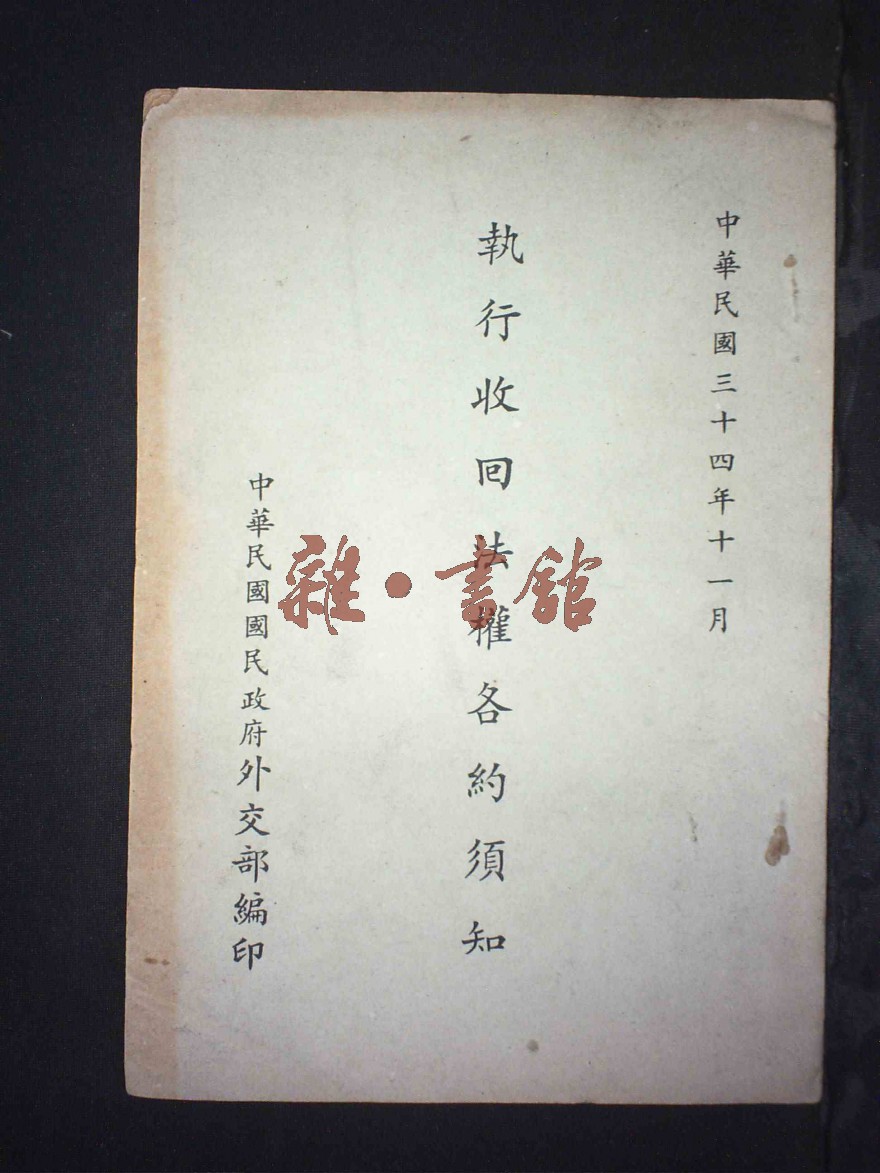 中華民國三十四年十一月
執行收回法權各約須知
中華民國國民政府外交部編印
雜•書館